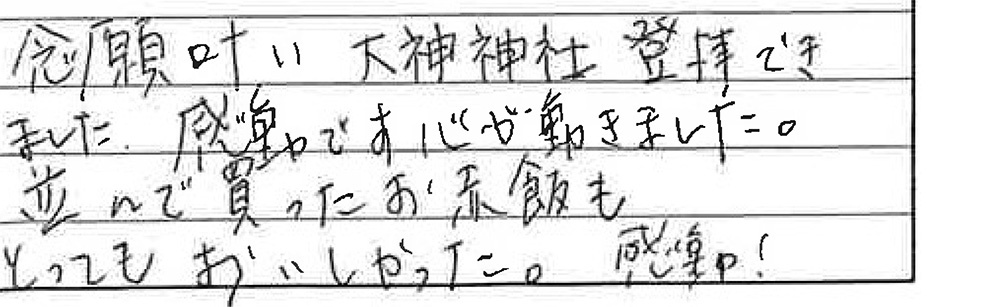 念願叶い 大神神社 登拝でき
ました。感動です 心が動きました。
並んで買ったお赤飯も
とってもおいしかった。 感動!